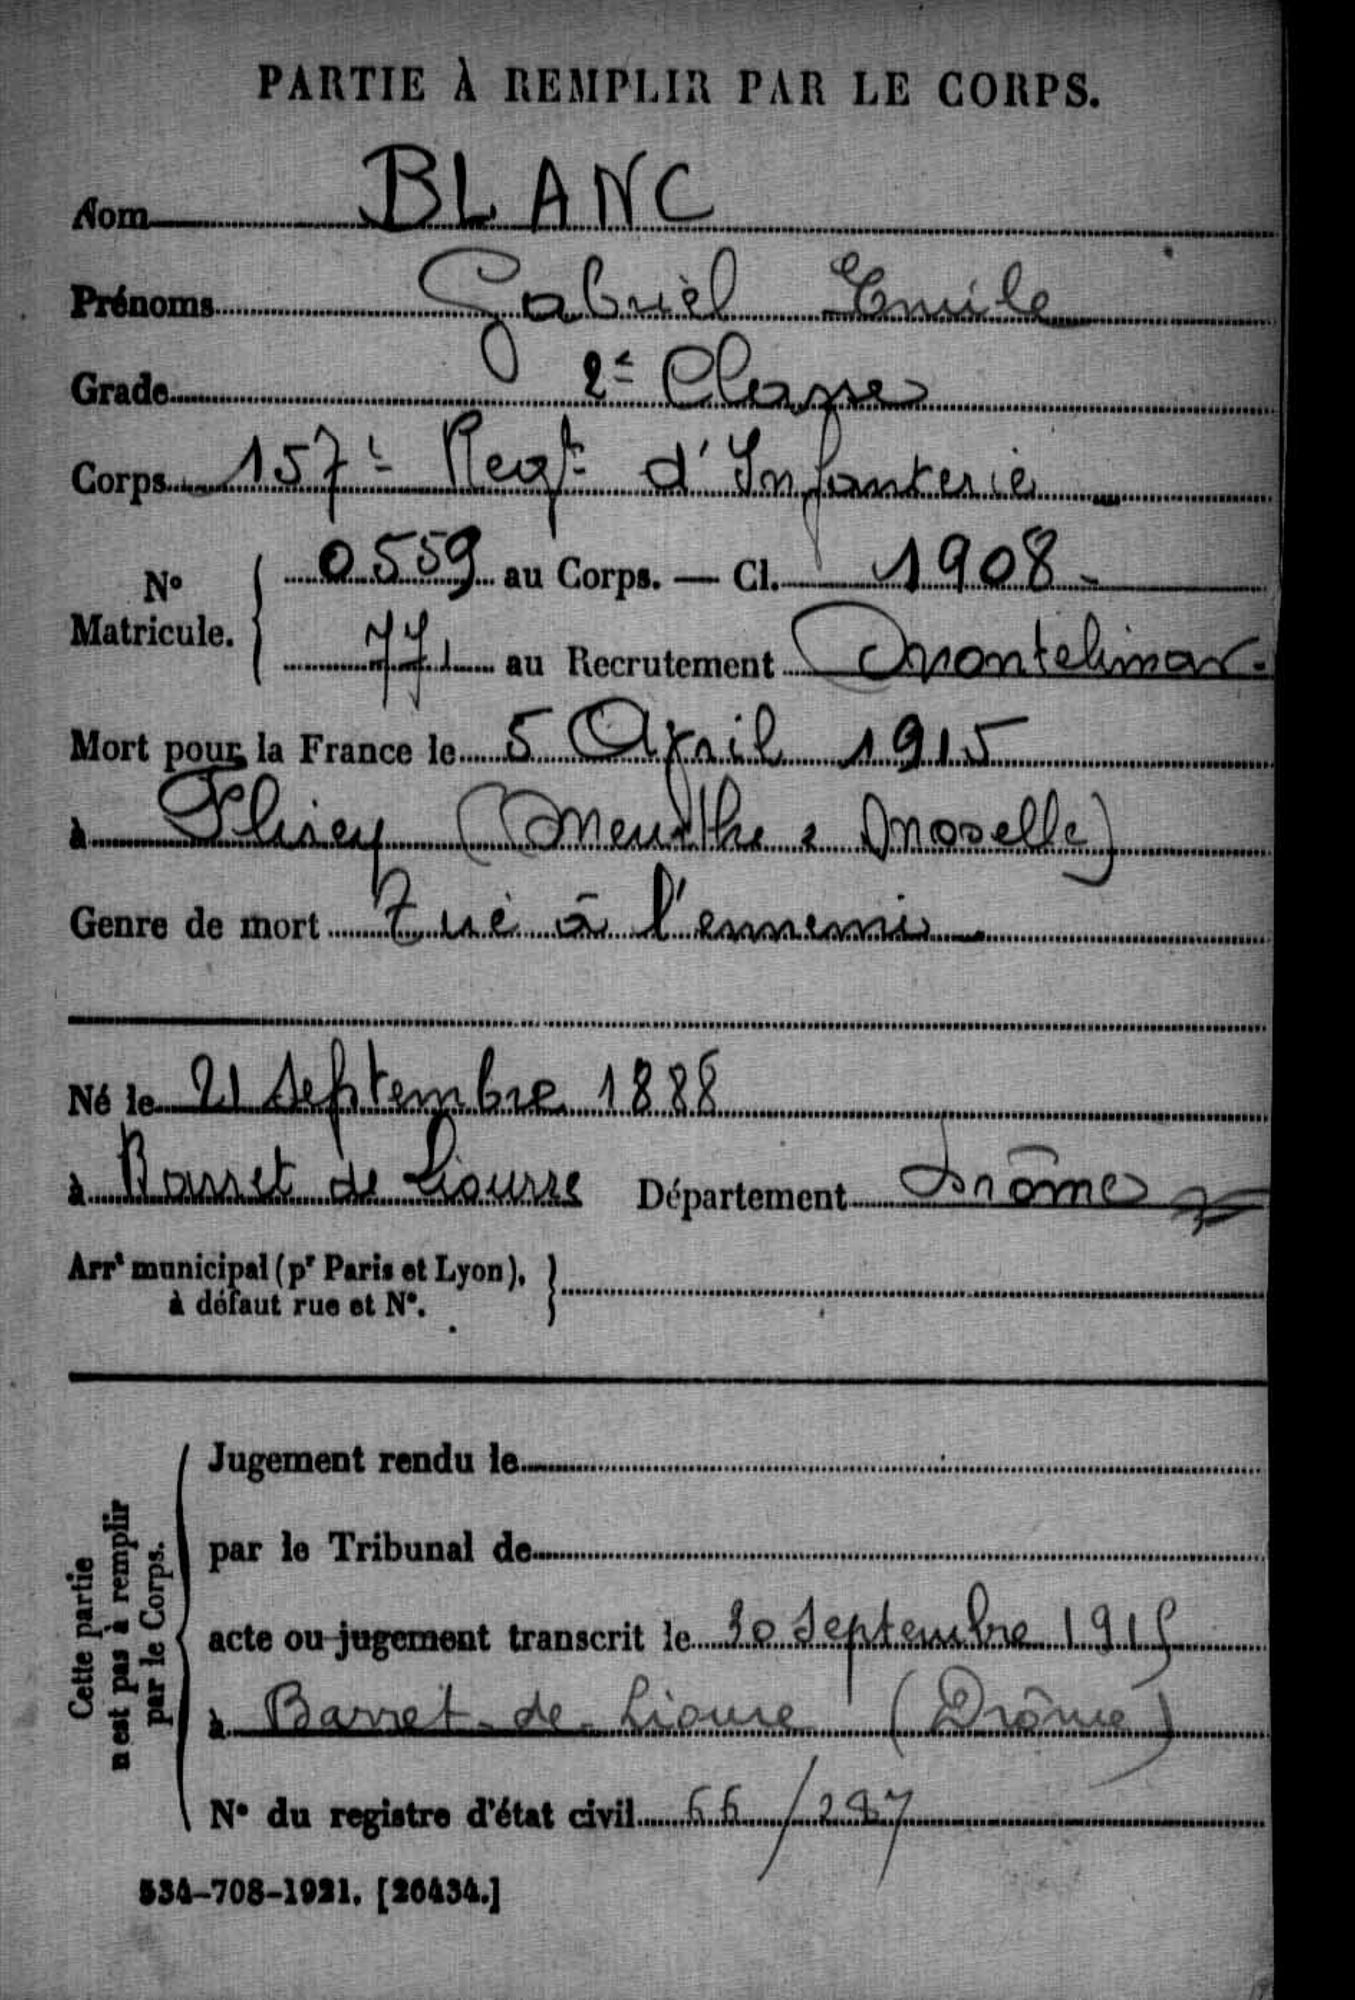 PARTIE À REMPLIR PAR LE CORPS.
Nom BLANC
Prénoms Gabriel Emile
Grade 2e Classe
Corps 157e Regt d'Infanterie
N° Matricule. 0559 au Corps. — Cl. 1908
771 au Recrutement Montelimar.
Mort pour la France le 5 Avril 1915
à Flirey (Meurthe & Moselle)
Genre de mort Tué à l'ennemi
Né le 21 Septembre 1888
à Barret de Liourre Département Drôme
Arrt municipal (pr Paris et Lyon),
à défaut rue et N°.
Cette partie
n'est pas à remplir
par le Corps.
Jugement rendu le
par le Tribunal de
acte ou jugement transcrit le 30 Septembre 1915
à Barret-de-Lioure (Drôme)
N° du registre d'état civil 66/287
534-708-1921. [26434.]